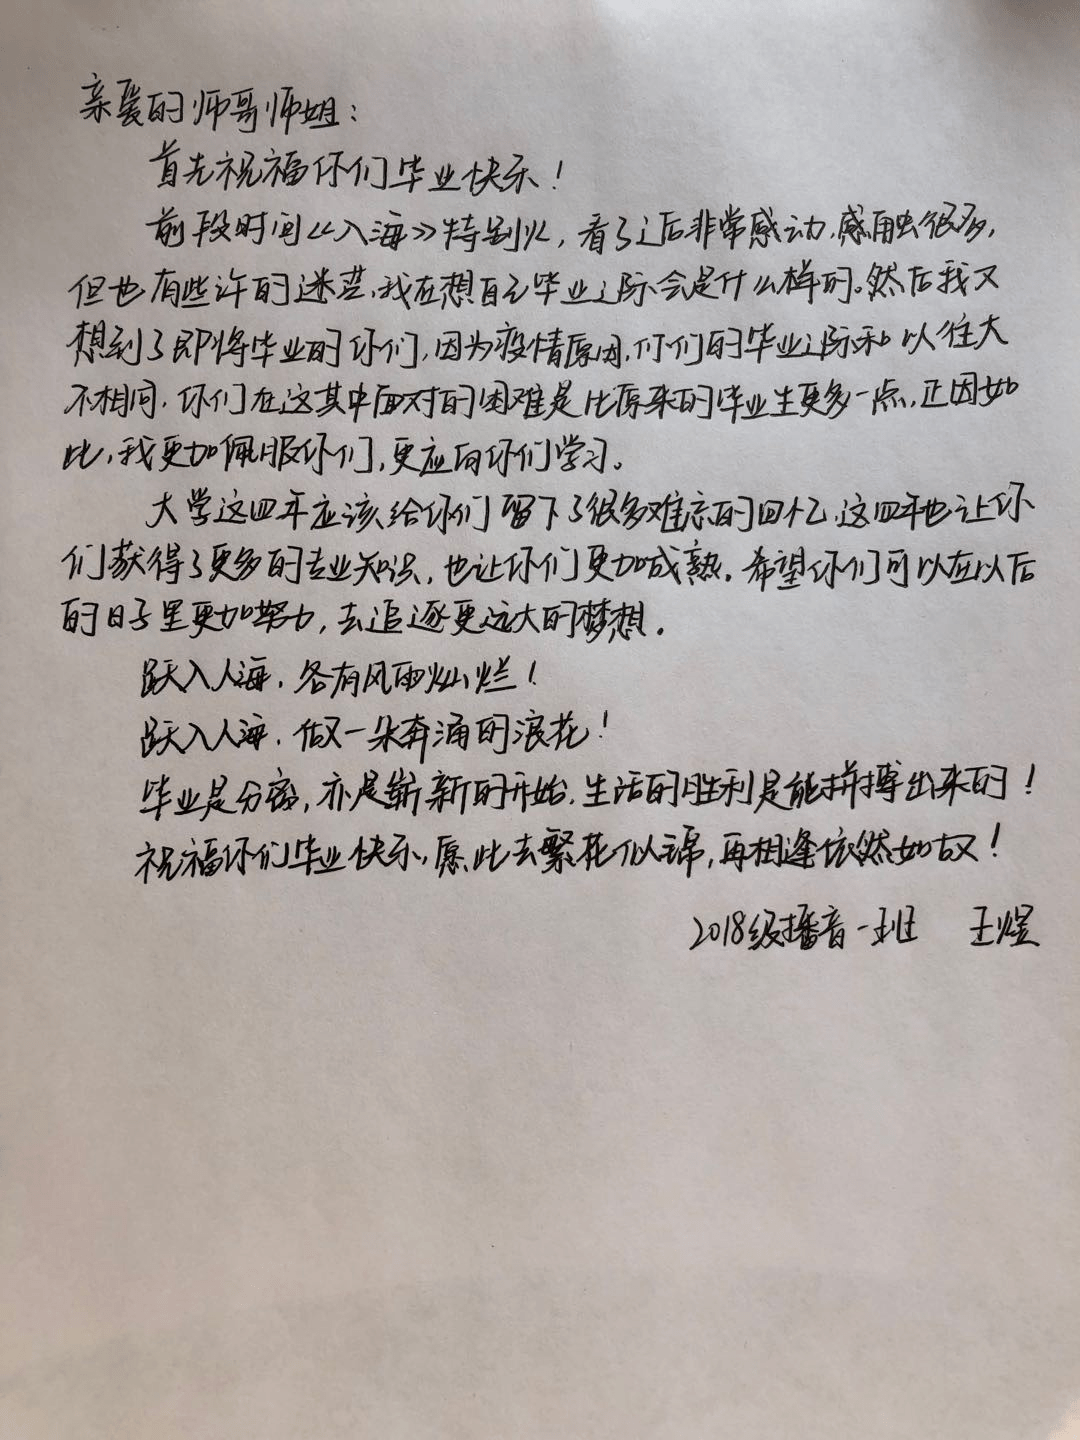 亲爱的师哥师姐：
首先祝福你们毕业快乐！
前段时间《入海》特别火，看了过后非常感动，感触很多，
但也有些许的迷茫，我在想自己毕业之际会是什么样的。然后我又
想到了即将毕业的你们，因为疫情原因，你们的毕业之际和以往大
不相同，你们在这其中面对的困难是比原来的毕业生更多一点，正因如
此，我更加佩服你们，更应向你们学习。
大学这四年应该给你们留下了很多难忘的回忆，这四年也让你
们获得了更多的专业知识，也让你们更加成熟。希望你们可以在以后
的日子里更加努力，去追逐更远大的梦想。
跃入人海，各有风雨灿烂！
跃入人海，做一朵奔涌的浪花！
毕业是分离，亦是崭新的开始，生活的胜利是能拼搏出来的！
祝福你们毕业快乐，愿此去繁花似锦，再相逢依然如故！
2018级播音一班 王煜